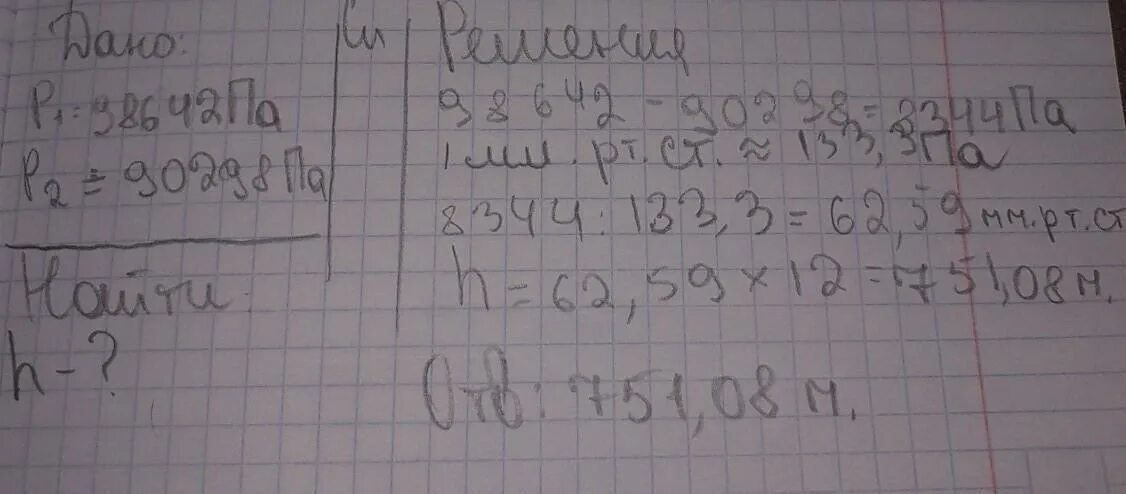 Дано:
P₁=98642Па
P₂=90298Па
Найти
h-?
Си
Решения
98642-90298=8344Па
1 мм. рт. ст. ≈ 133,3Па
8344:133,3=62,59мм.рт.ст
h=62,59×12=751,08м.
Отв: 751,08 м.